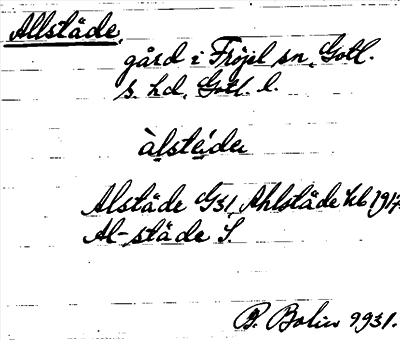 Allstäde,
gård i Fröjel sn, Gotl.
s. hd, Gotl. l.
àlstéıde
Alstäde G31, Ahlstäde kb 1917
Al-städe S.
B. Bolin 1931.